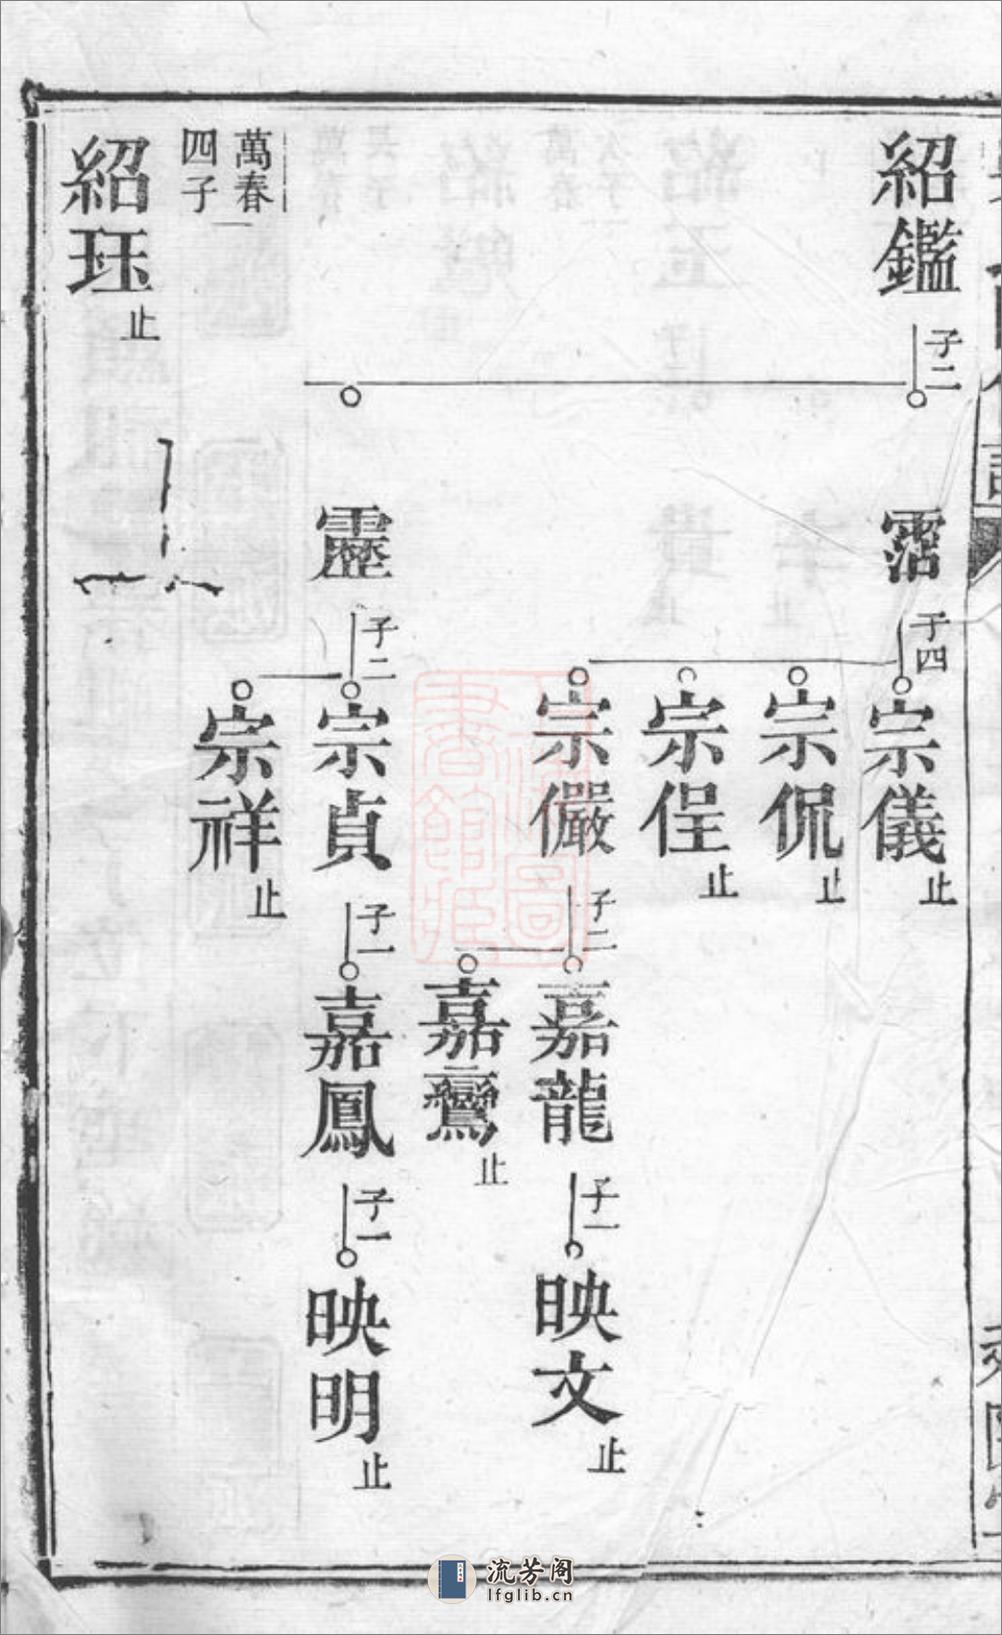 紹鑑
子二
霑
子四
宗儀
止
宗侃
止
宗侱
止
宗儼
子二
嘉龍
子一
映文
止
嘉鸞
止
靂
子二
宗貞
子一
嘉鳳
子一
映明
止
宗祥
止
萬春
四子
紹珏
止
流芳阁
lfglib.cn